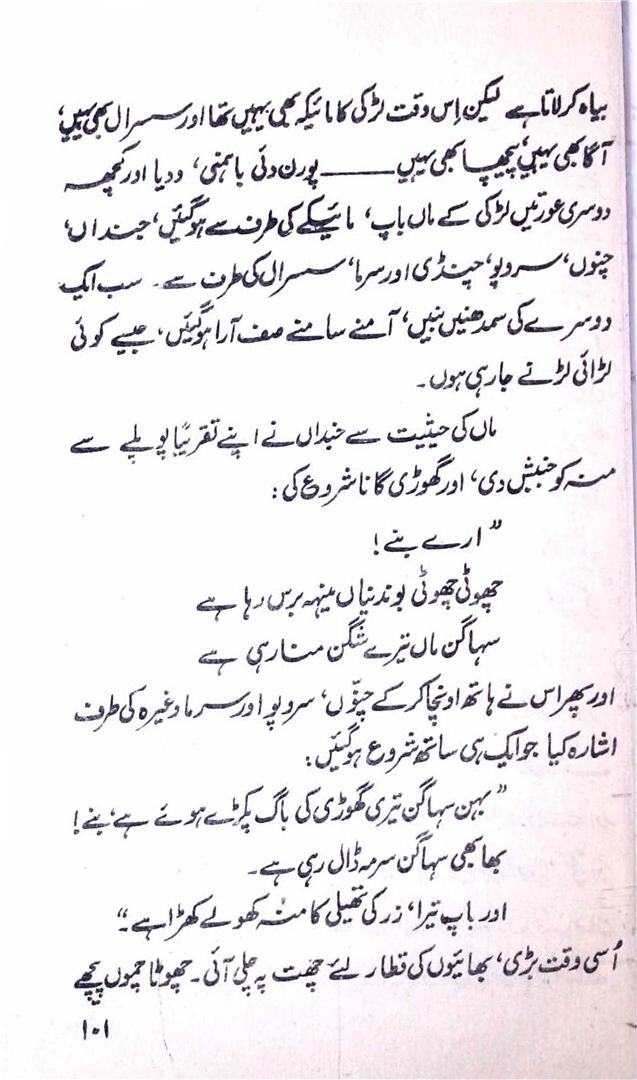 بیاہ کر لاتا ہے لیکن اِس وقت لڑکی کا مائیکہ بھی یہیں تھا اور سسرال بھی یہیں،
آگا بھی یہیں، پیچھا بھی یہیں ——— پورن دئی باہمنی، ودیا اور کچھ
دوسری عورتیں لڑکی کے ماں باپ، مائیکے کی طرف سے ہو گئیں، جنداں،
چنوں، سروپو، چنڈی اور سرما، سسرال کی طرف سے۔ سب ایک
دوسرے کی سمدھنیں بنیں، آمنے سامنے صف آرا ہو گئیں، جیسے کوئی
لڑائی لڑنے جا رہی ہوں۔
ماں کی حیثیت سے جنداں نے اپنے تقریباً پوپلے سے
منہ کو جنبش دی، اور گھوڑی گانا شروع کی:
”ارے بنے!
چھوٹی چھوٹی بوندنیاں مینہہ برس رہا ہے
سہاگن ماں تیرے شگن منا رہی ہے
اور پھر اس نے ہاتھ اونچا کر کے چنّوں، سروپو اور سرما وغیرہ کی طرف
اشارہ کیا جو ایک ہی ساتھ شروع ہو گئیں:
”بہن سہاگن تیری گھوڑی کی باگ پکڑے ہوئے ہے، بنے!
بھابھی سہاگن سرمہ ڈال رہی ہے۔
اور باپ تیرا، زر کی تھیلی کا منہ کھولے کھڑا ہے۔“
اُسی وقت بڑی، بھائیوں کی قطار لئے چھت پہ چلی آئی۔ چھوٹا چموں پیچھے
۱۰۱